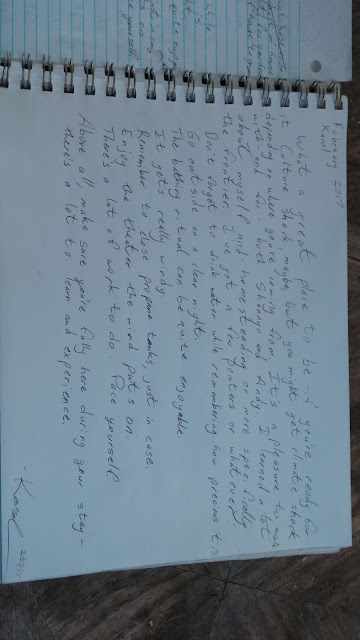 February 2017
What a great place to be - if you're ready for
it. Culture shock maybe, but you might get climate shock
depending on where you're coming from. It's a pleasure to work
with - and for - both and Andy. I learned a lot
about myself and homesteading or more specifically
the frontier. I've got a few pointers or whatever.
Don't forget to drink water while remembering how precious it is.
Go outside on a clear night.
The bathing ritual can be quite enjoyable.
It gets really windy.
Remember to close propane tanks, just in case.
Enjoy the theater the mind puts on.
There's a lot of work to do. Pace yourself.
Above all, make sure you're fully here during your stay -
there's a lot to learn and experience.